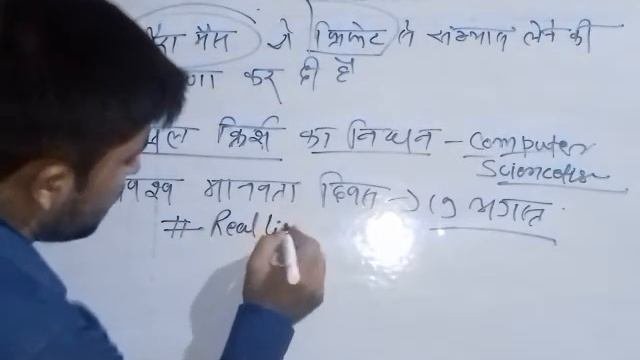 मैस ने क्रिकेट से संन्यास लेने की
णा कर दी है
क्रिर्श का निधन - Computer
Sciencetis
मानवता दिवस → 19 अगस्त
# Real li